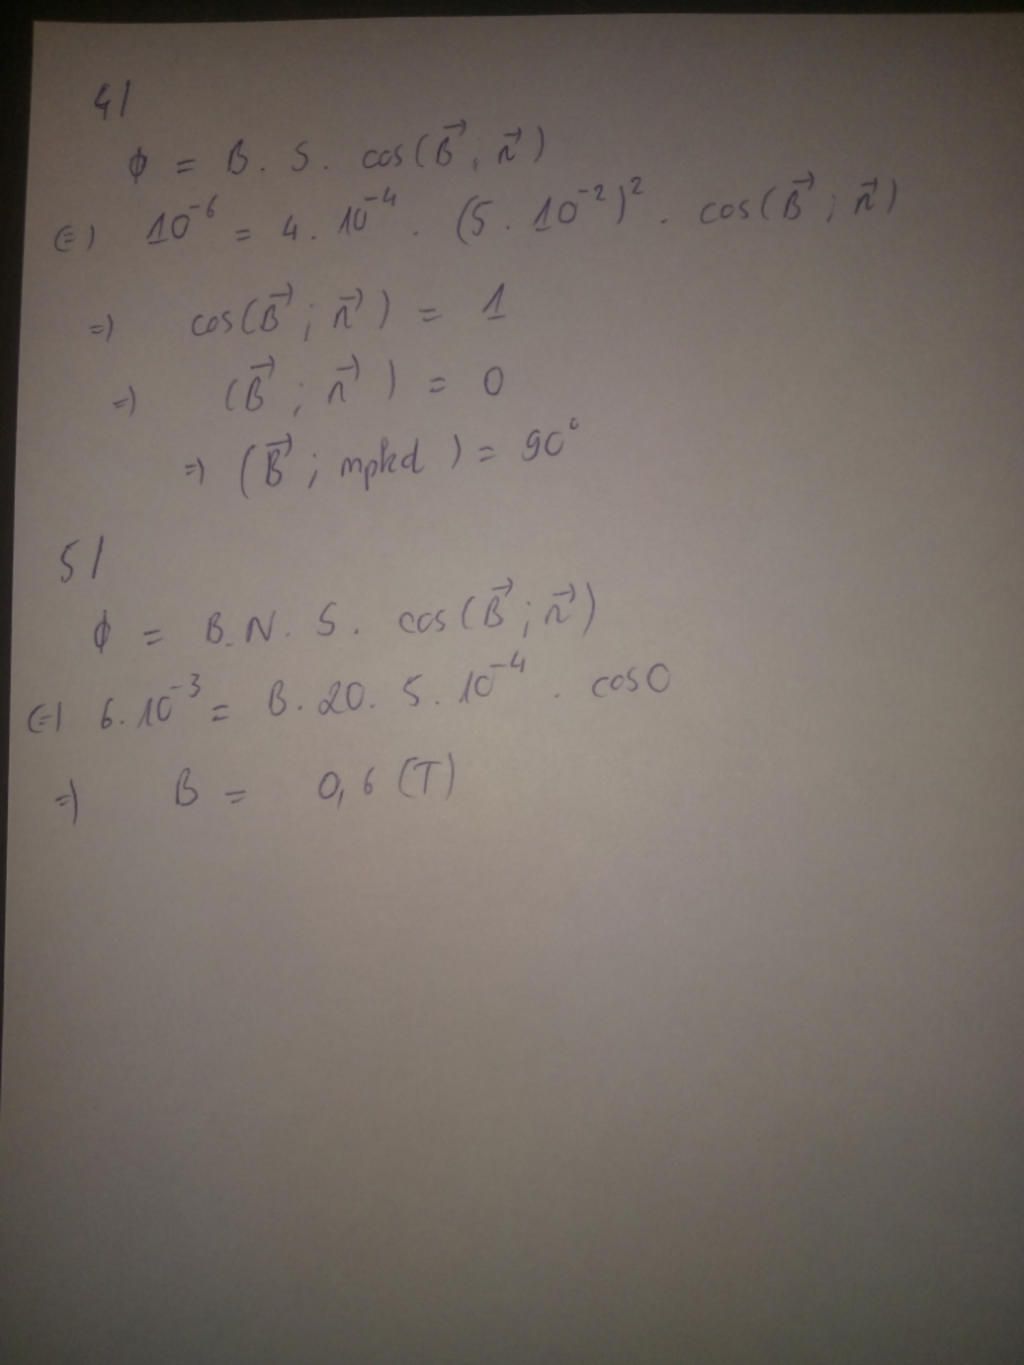 4/
Φ = B . S . cos(B⃗ ; n⃗)
(=) 10⁻⁶ = 4 . 10⁻⁴ . (5 . 10⁻²)² . cos(B⃗ ; n⃗)
=) cos(B⃗ ; n⃗) = 1
=) (B⃗ ; n⃗) = 0
=) (B⃗ ; mpkd) = 90°
5/
Φ = B.N. S. cos(B⃗ ; n⃗)
(=) 6. 10⁻³ = B. 20. 5. 10⁻⁴ . cos0
=) B = 0,6 (T)